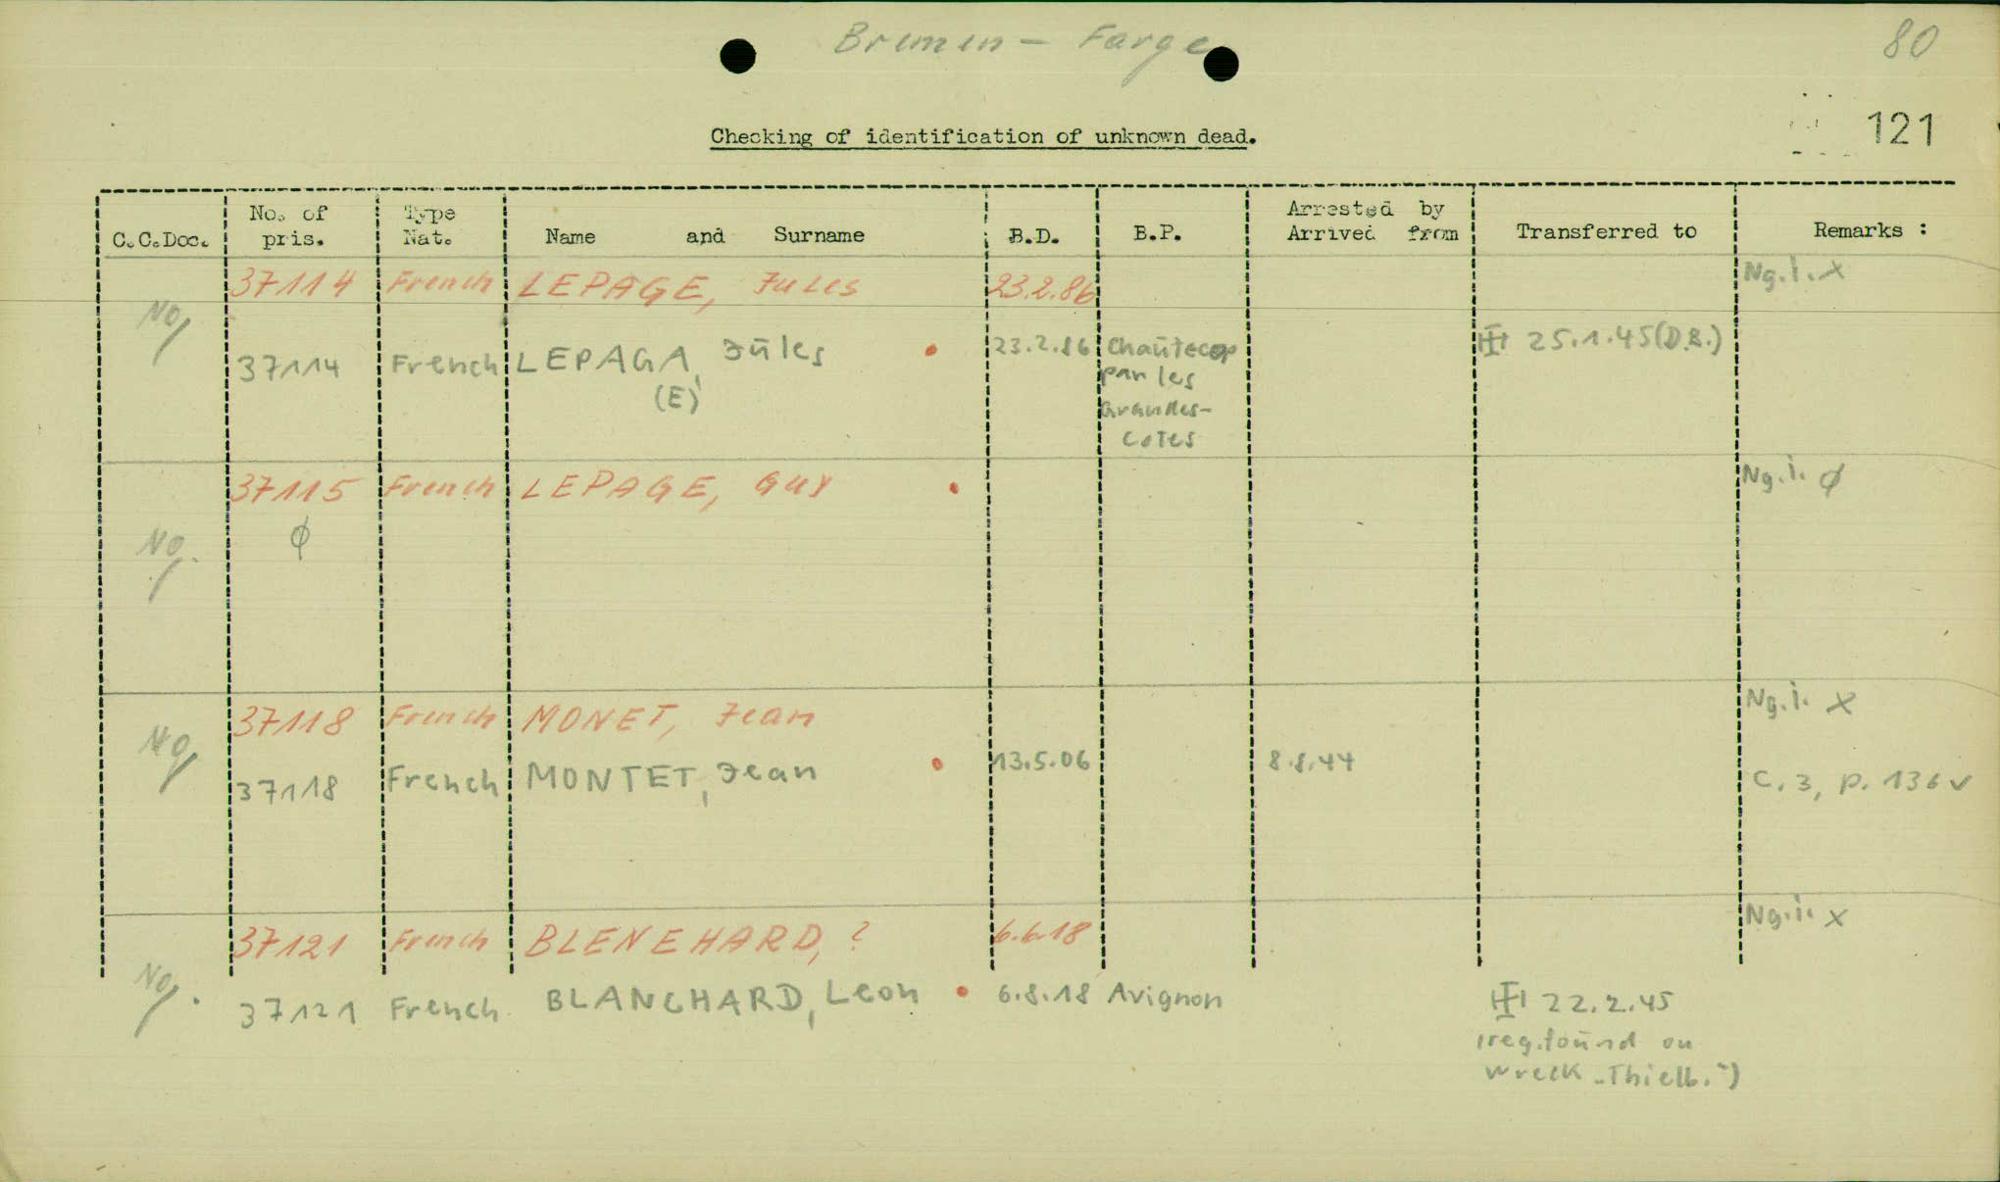 Bremen - Farge
80
121
Checking of identification of unknown dead.
C.C.Doc. No. of pris. Type Nat. Name and Surname B.D. B.P. Arrested by Arrived from Transferred to Remarks :
37114 French LEPAGE, Jules 23.2.86 Ng.i. x
No
37114 French LEPAGA, Jules 23.2.86 Chautecop 25.1.45(D.B.)
(E) par les
Grandes-
Cotes
37115 French LEPAGE, Guy Ng.i. ϕ
No. ϕ
37118 French MONET, Jean Ng.i. x
No
37118 French MONTET, Jean 13.5.06 8.8.44 C. 3, p. 136 v
37121 French BLENEHARD, ? 6.6.18 Ng.i. x
No.
37121 French BLANCHARD, Leon 6.8.18 Avignon 22.2.45
(reg. found on
wreck „Thielb.")